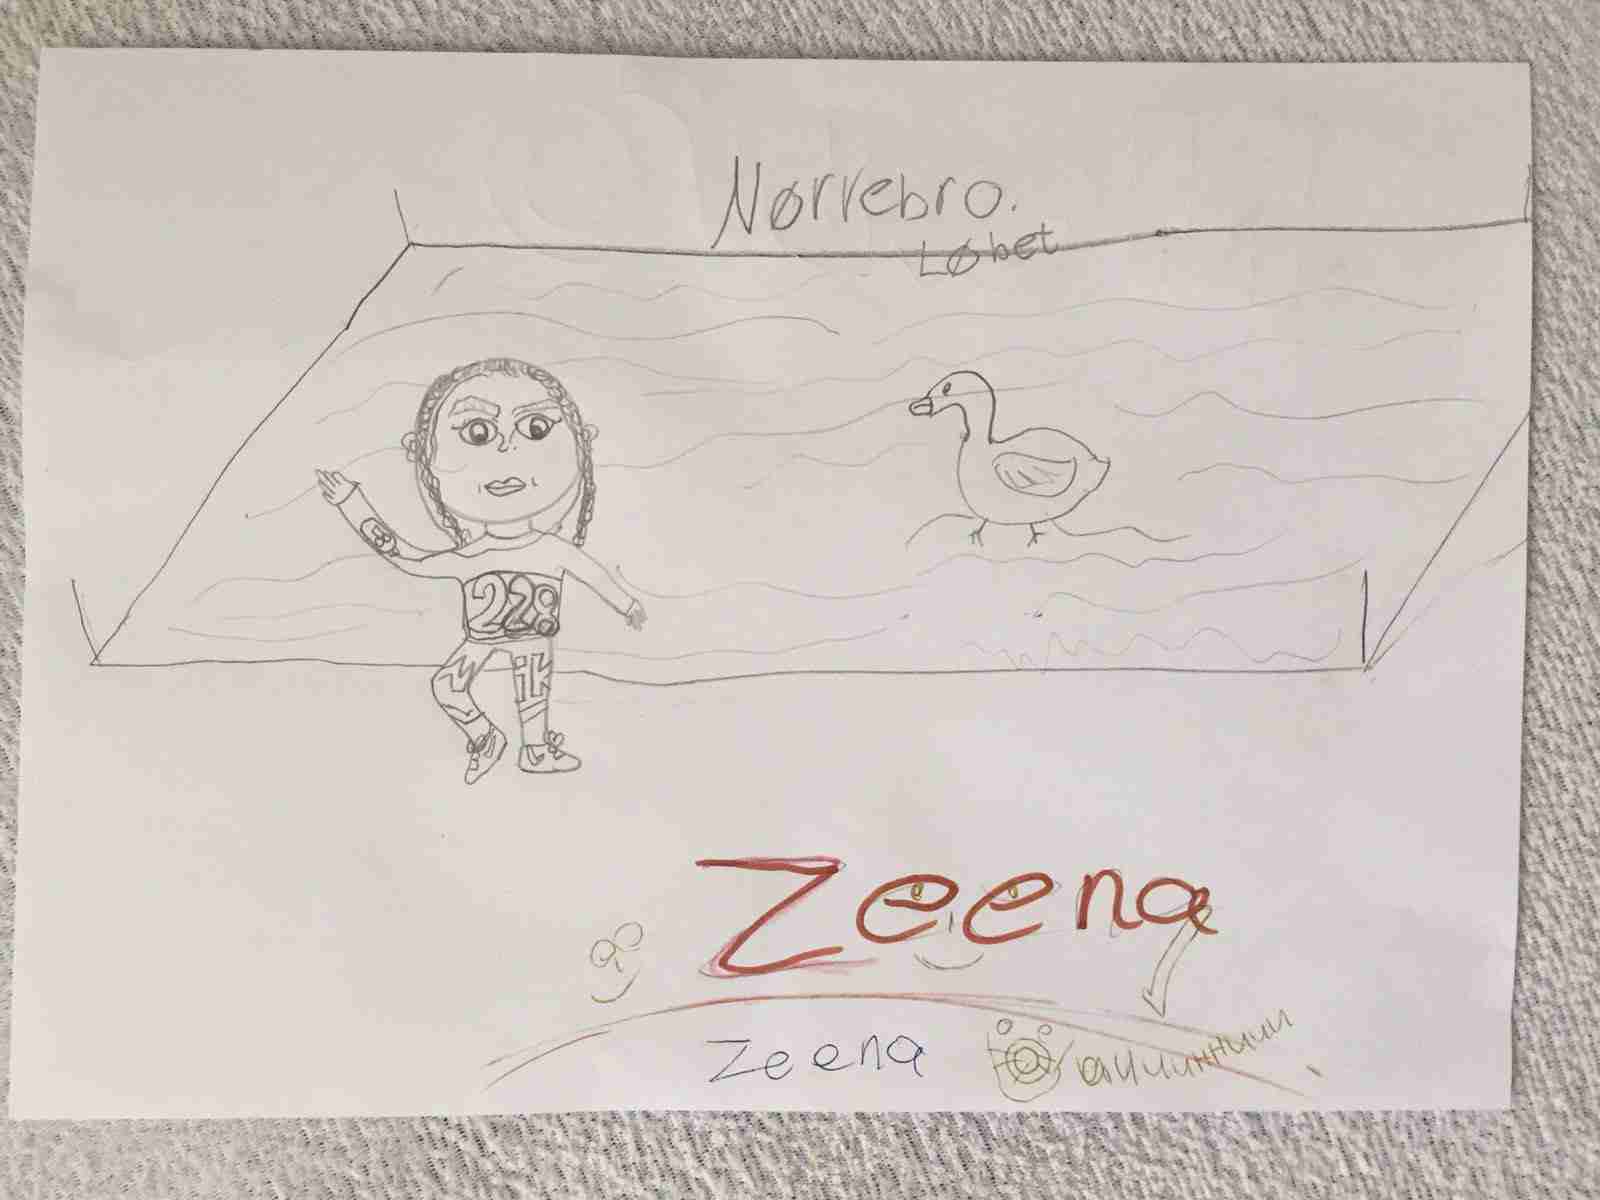 Nørrebro.
Løbet
228
Zeena
Zeena